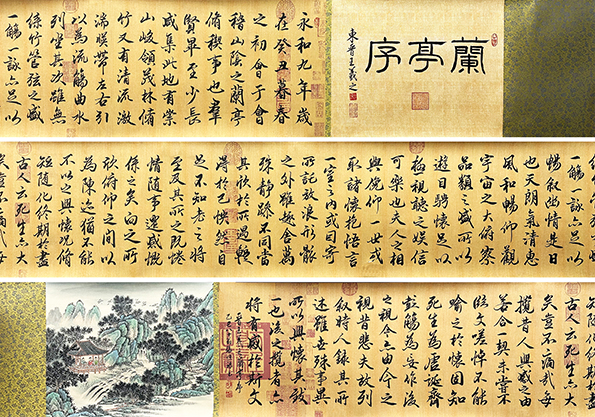 蘭亭序
東晉王羲之
永和九年歲
在癸丑暮春
之初會于會
稽山陰之蘭亭
脩禊事也羣
賢畢至少長
咸集此地有崇
山峻領茂林脩
竹又有清流激
湍暎帶左右引
以為流觴曲水
列坐其次雖無
絲竹管弦之盛
一觴一詠亦足以
一觴一詠亦足以
暢叙幽情是日
也天朗氣清惠
風和暢仰觀
宇宙之大俯察
品類之盛所以
遊目騁懷足以
極視聽之娛信
可樂也夫人之相
與俯仰一世或
取諸懷抱悟言
一室之內或因寄
所託放浪形骸
之外雖趣舍萬
殊靜躁不同當
其欣於所遇暫
得於己快然自
足不知老之將
至及其所之既惓
情隨事遷感慨
係之矣向之所
欣俛仰之間以
為陳迹猶不能
不以之興懷況脩
短隨化終期於盡
古人云死生亦大
矣豈不痛哉每
短隨化終期於盡
古人云死生亦大
矣豈不痛哉每
攬昔人興感之由
若合一契未嘗不
臨文嗟悼不能
喻之於懷固知
死生為虛誕齊
彭殤為妄作後
之視今亦由今之
視昔悲夫故列
叙時人錄其所
述雖世殊事異
所以興懷其致
一也後之攬者亦
將有感於斯文